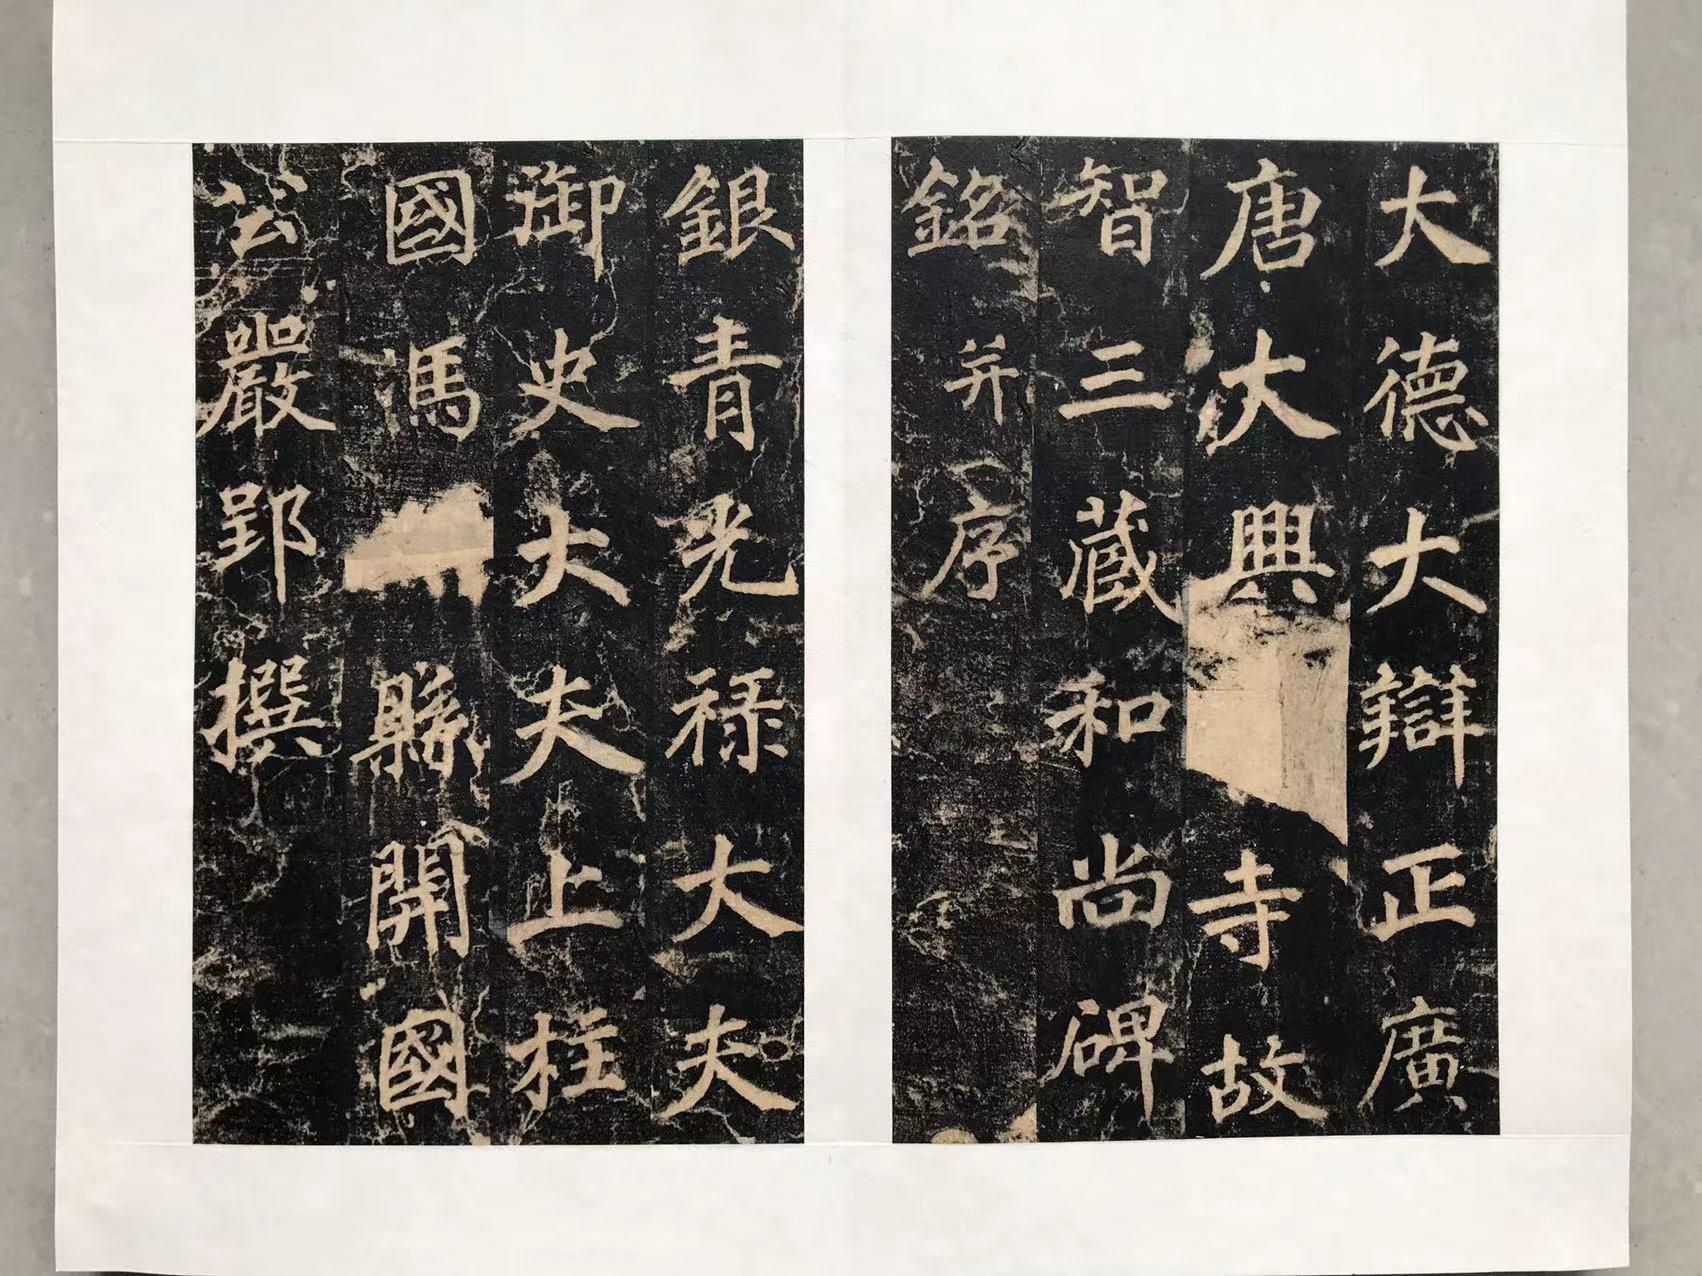 唐大興寺故
大德大辯正廣
智三藏和尚碑
銘并序
銀青光禄大夫
御史大夫上柱
國馮縣開國
公嚴郢撰